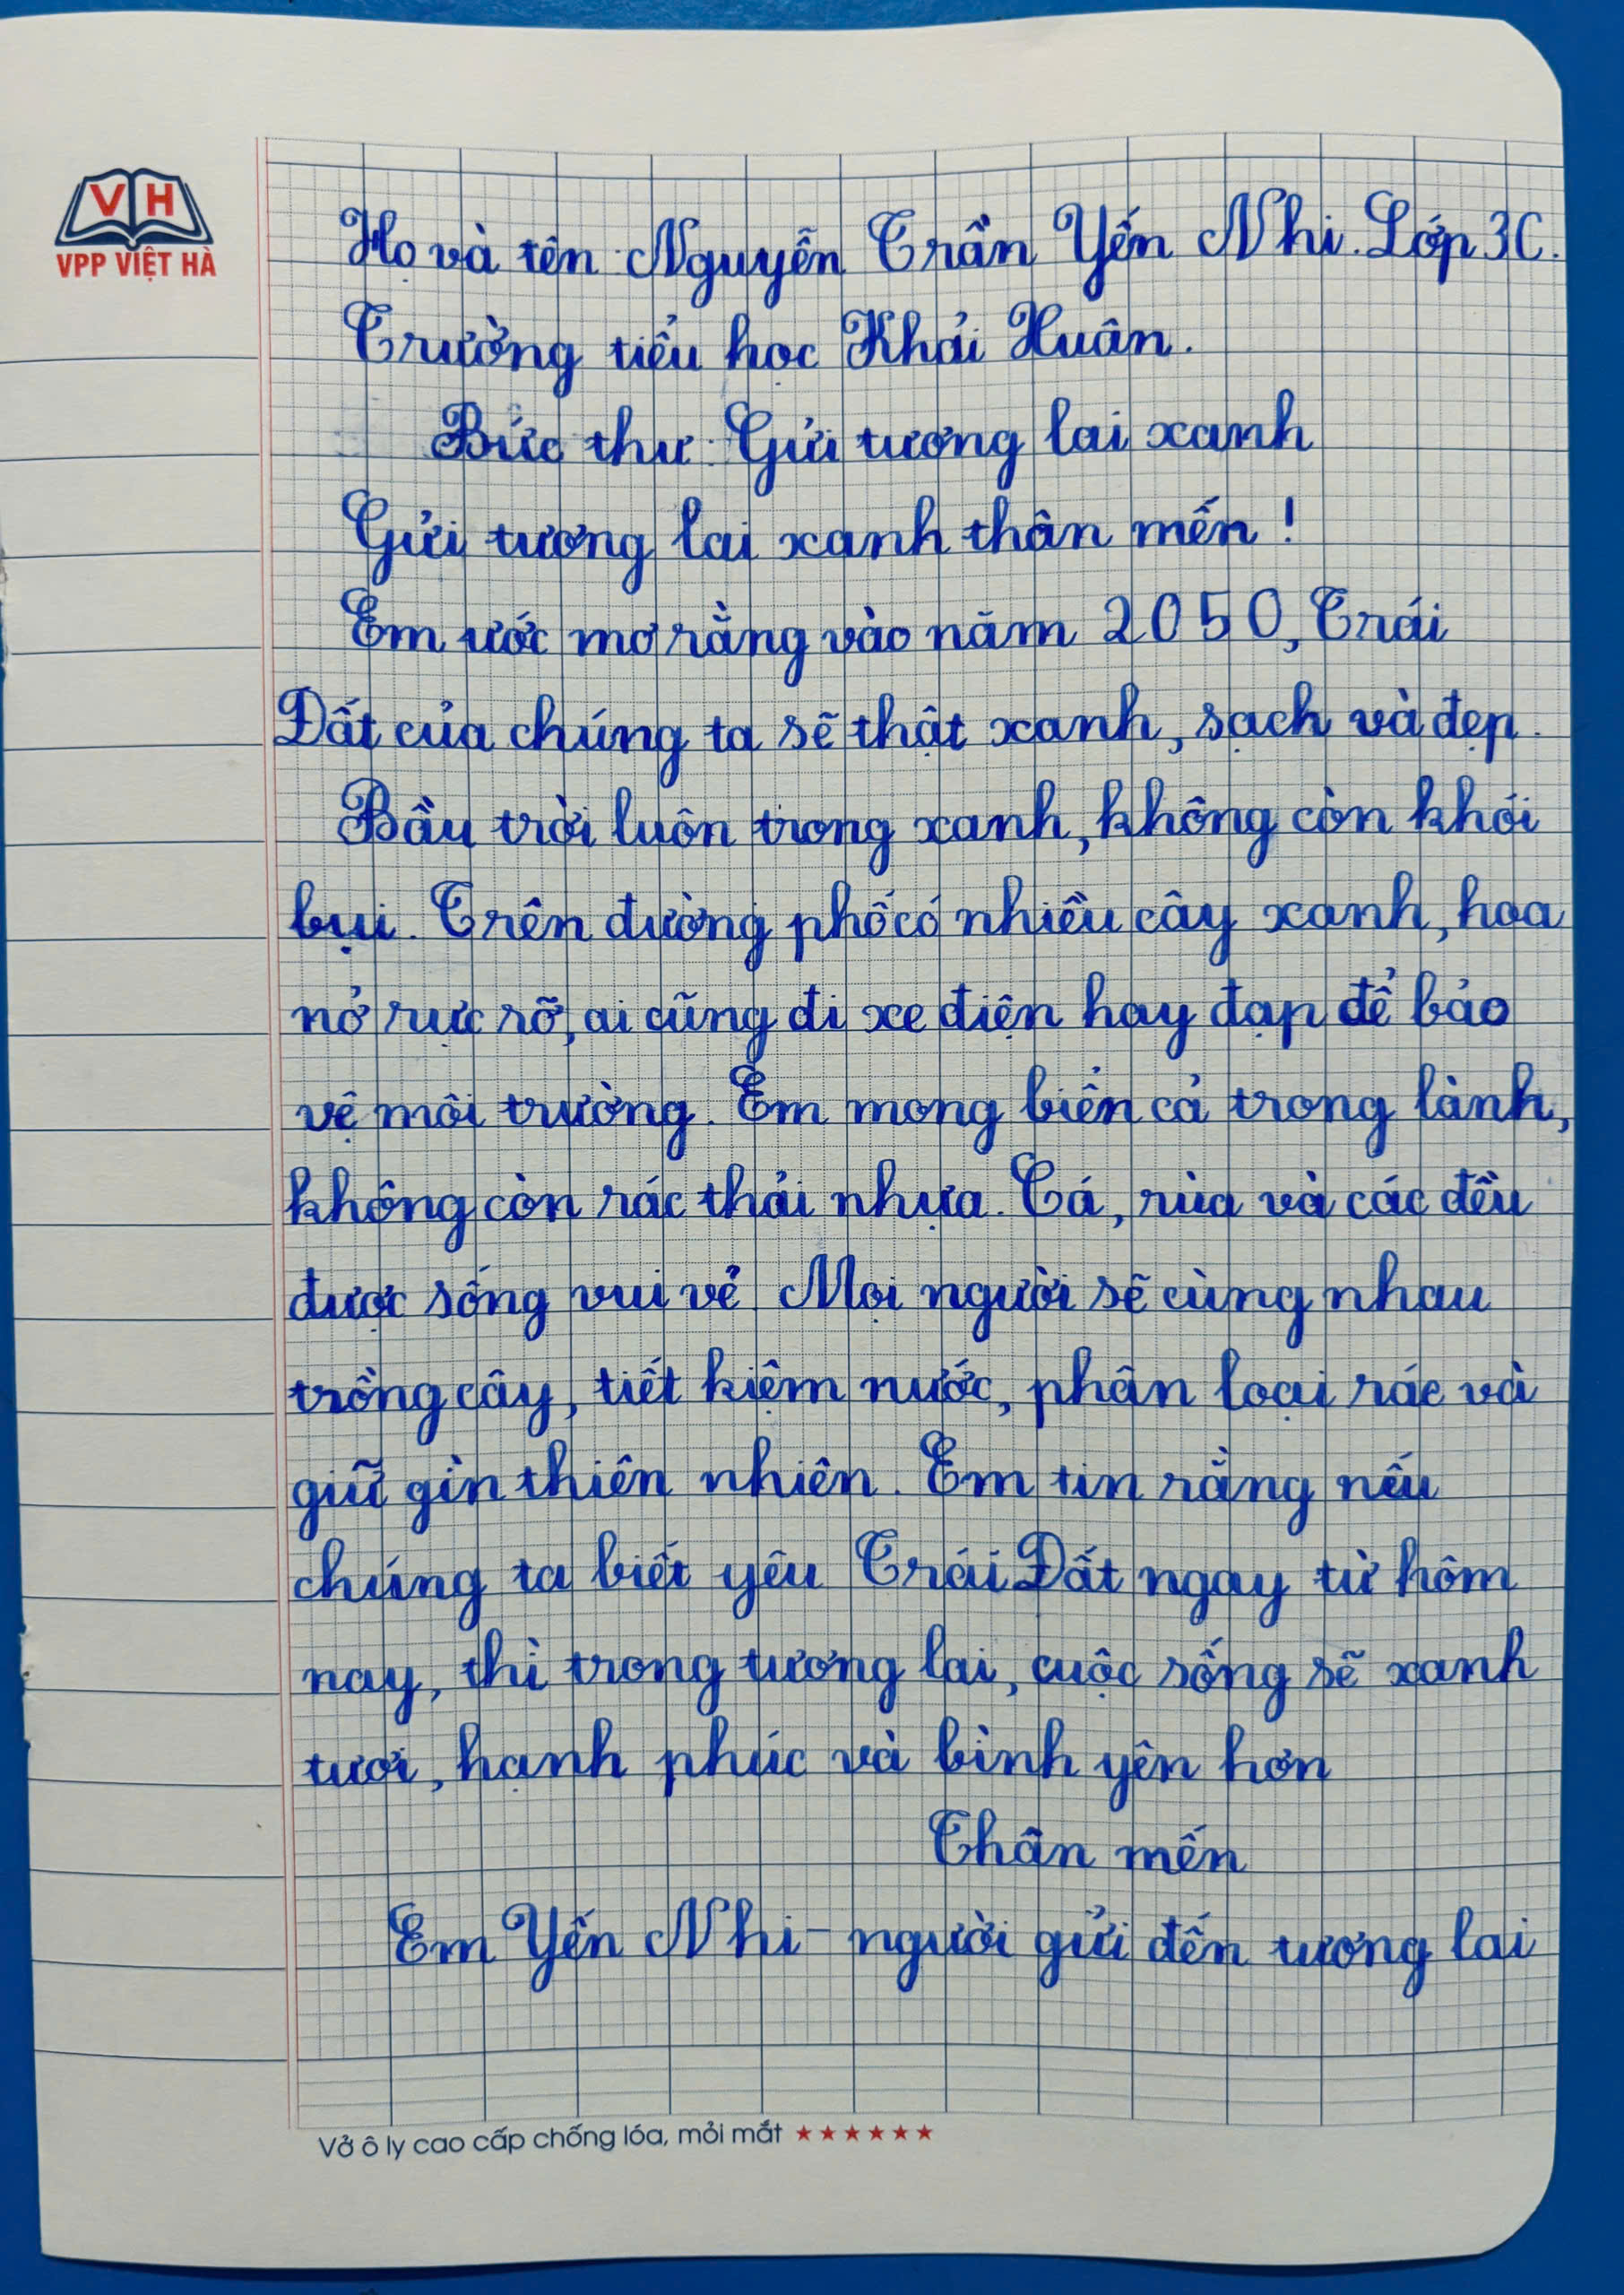 VH
VPP VIỆT HÀ
Họ và tên: Nguyễn Trần Yến Nhi. Lớp 3C.
Trường tiểu học Khải Xuân.
Bức thư: Gửi tương lai xanh
Gửi tương lai xanh thân mến!
Em ước mơ rằng vào năm 2050, Trái
Đất của chúng ta sẽ thật xanh, sạch và đẹp.
Bầu trời luôn trong xanh, không còn khói
bụi. Trên đường phố có nhiều cây xanh, hoa
nở rực rỡ, ai cũng đi xe điện hay đạp để bảo
vệ môi trường. Em mong biển cả trong lành,
không còn rác thải nhựa. Cá, rùa và các đều
được sống vui vẻ. Mọi người sẽ cùng nhau
trồng cây, tiết kiệm nước, phân loại rác và
giữ gìn thiên nhiên. Em tin rằng nếu
chúng ta biết yêu Trái Đất ngay từ hôm
nay, thì trong tương lai, cuộc sống sẽ xanh
tươi, hạnh phúc và bình yên hơn
Thân mến
Em Yến Nhi - người gửi đến tương lai
Vở ô ly cao cấp chống lóa, mỏi mắt ★★★★★★